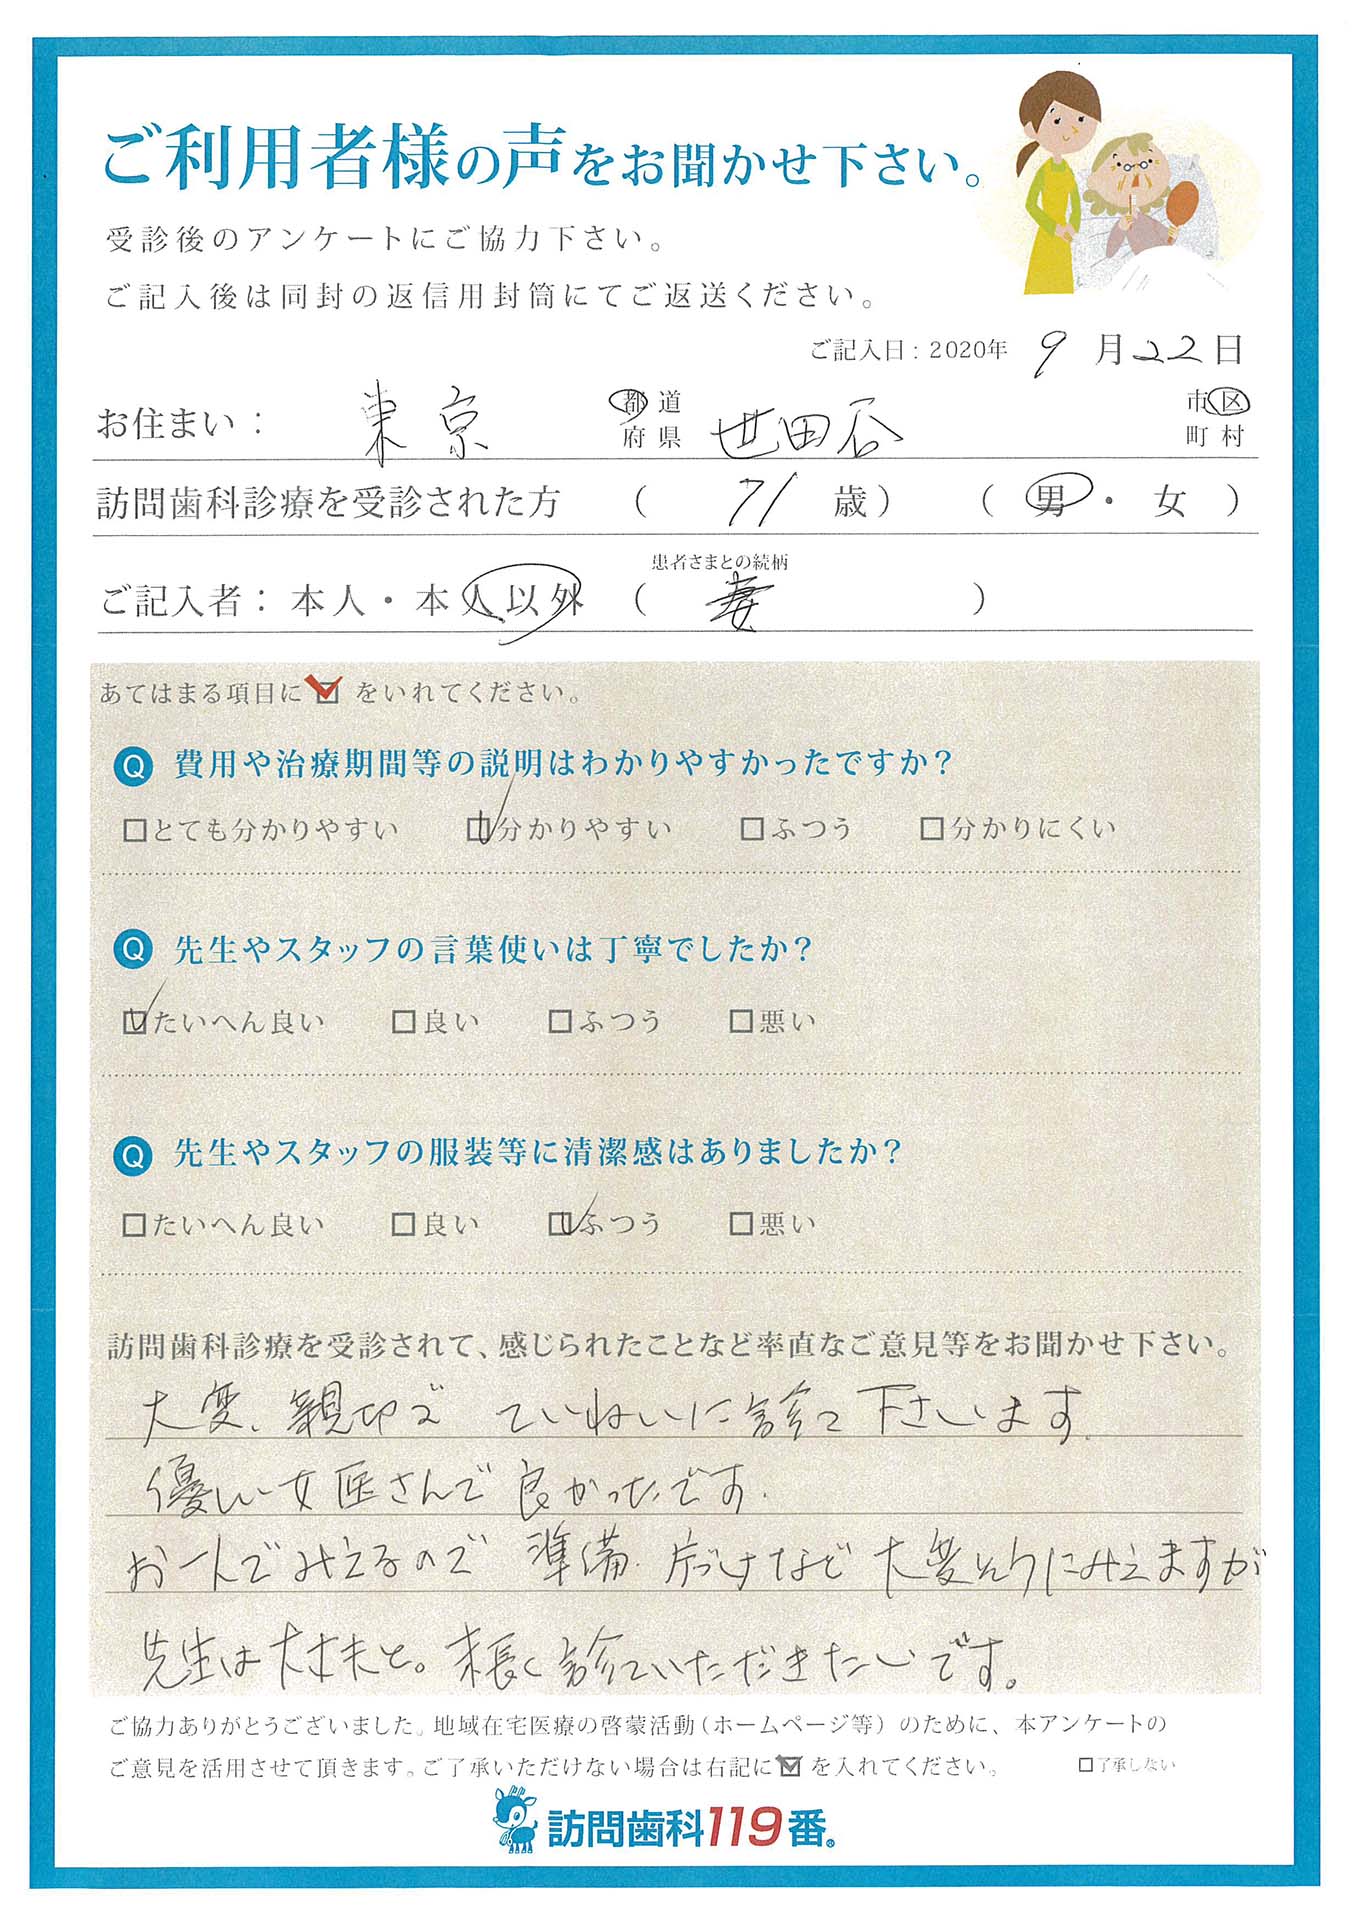 ご利用者様の声をお聞かせ下さい。
受診後のアンケートにご協力下さい。
ご記入後は同封の返信用封筒にてご返送ください。
ご記入日：2020年 9月22日
お住まい： 東京 都道府県 世田谷 市区町村
訪問歯科診療を受診された方 （ 71 歳） （ 男・女 ）
患者さまとの続柄
ご記入者：本人・本人以外 （ 妻 ）
あてはまる項目に☑をいれてください。
Q 費用や治療期間等の説明はわかりやすかったですか？
□とても分かりやすい ☑分かりやすい □ふつう □分かりにくい
Q 先生やスタッフの言葉使いは丁寧でしたか？
☑たいへん良い □良い □ふつう □悪い
Q 先生やスタッフの服装等に清潔感はありましたか？
□たいへん良い □良い ☑ふつう □悪い
訪問歯科診療を受診されて、感じられたことなど率直なご意見等をお聞かせ下さい。
大変、親切で ていねいに診て下さいます.
優しい女医さんで良かったです.
お一人でみえるので 準備.片づけなど 大変そうにみえますが
先生は大丈夫と。末長く診ていただきたいです。
ご協力ありがとうございました。地域在宅医療の啓蒙活動（ホームページ等）のために、本アンケートの
ご意見を活用させて頂きます。ご了承いただけない場合は右記に☑を入れてください。 □了承しない
訪問歯科119番®